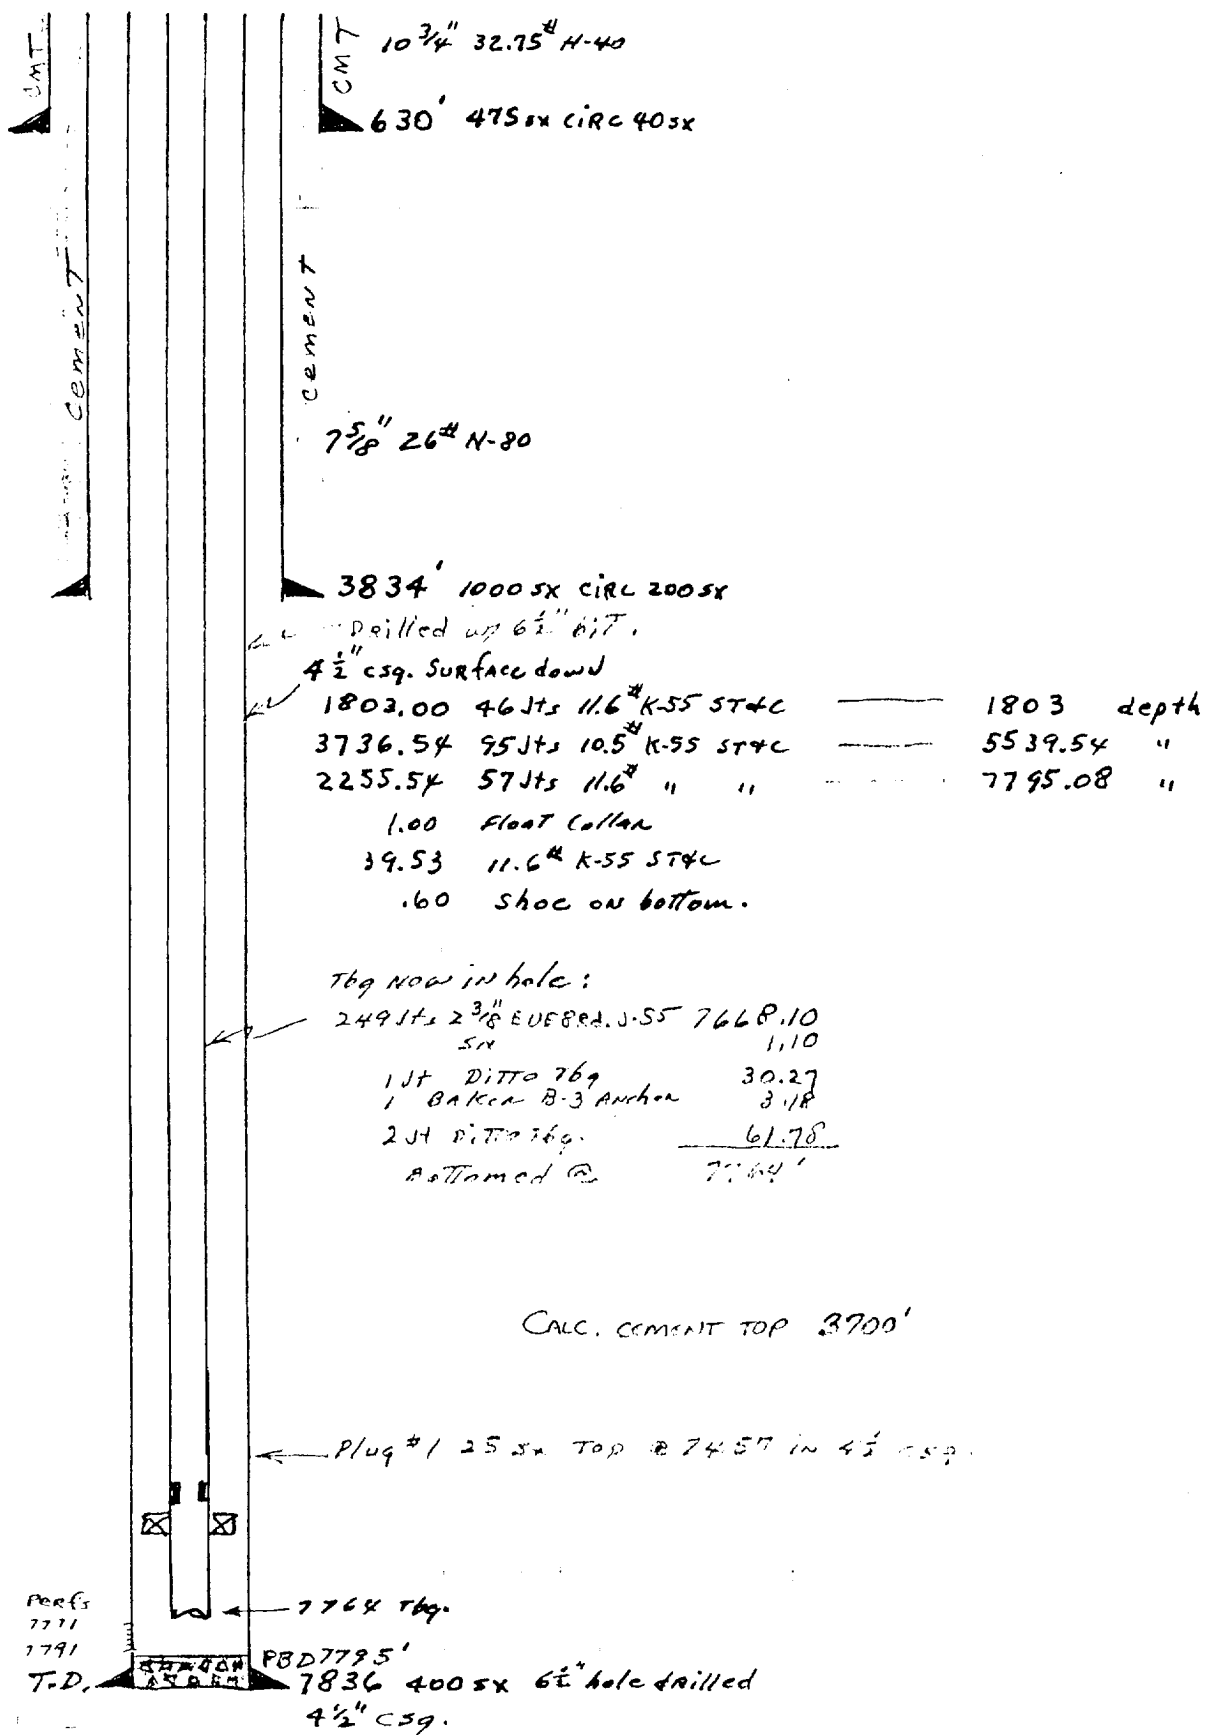 CMT
CMT
10 3/4" 32.75# H-40
630' 475 sx CIRC 40 sx
Cement
Cement
7 5/8" 26# N-80
3834' 1000 sx CIRC 200 sx
Drilled w/ 6 1/2" bit.
4 1/2" csg. Surface down
1803.00 46 Jts 11.6# K-55 ST&C —— 1803 depth
3736.54 95 Jts 10.5# K-55 ST&C —— 5539.54 "
2255.54 57 Jts 11.6# " " —— 7795.08 "
1.00 Float Collar
39.53 11.6# K-55 ST&C
.60 Shoe on bottom.
Tbg Now in hole:
249 Jts 2 3/8" EUE 8Rd. J-55 7668.10
SN 1.10
1 Jt Ditto Tbg 30.27
1 Baker B-3 Anchor 3.18
2 Jt Ditto Tbg. 61.78
Bottomed @ 7764'
CALC. CEMENT TOP 3700'
Plug #1 25 sx Top @ 7457 in 4 1/2 csg.
7764 Tbg.
Perfs
7771
7791
PBD 7795'
T.D. 7836 400 sx 6 1/2" hole drilled
4 1/2" csg.